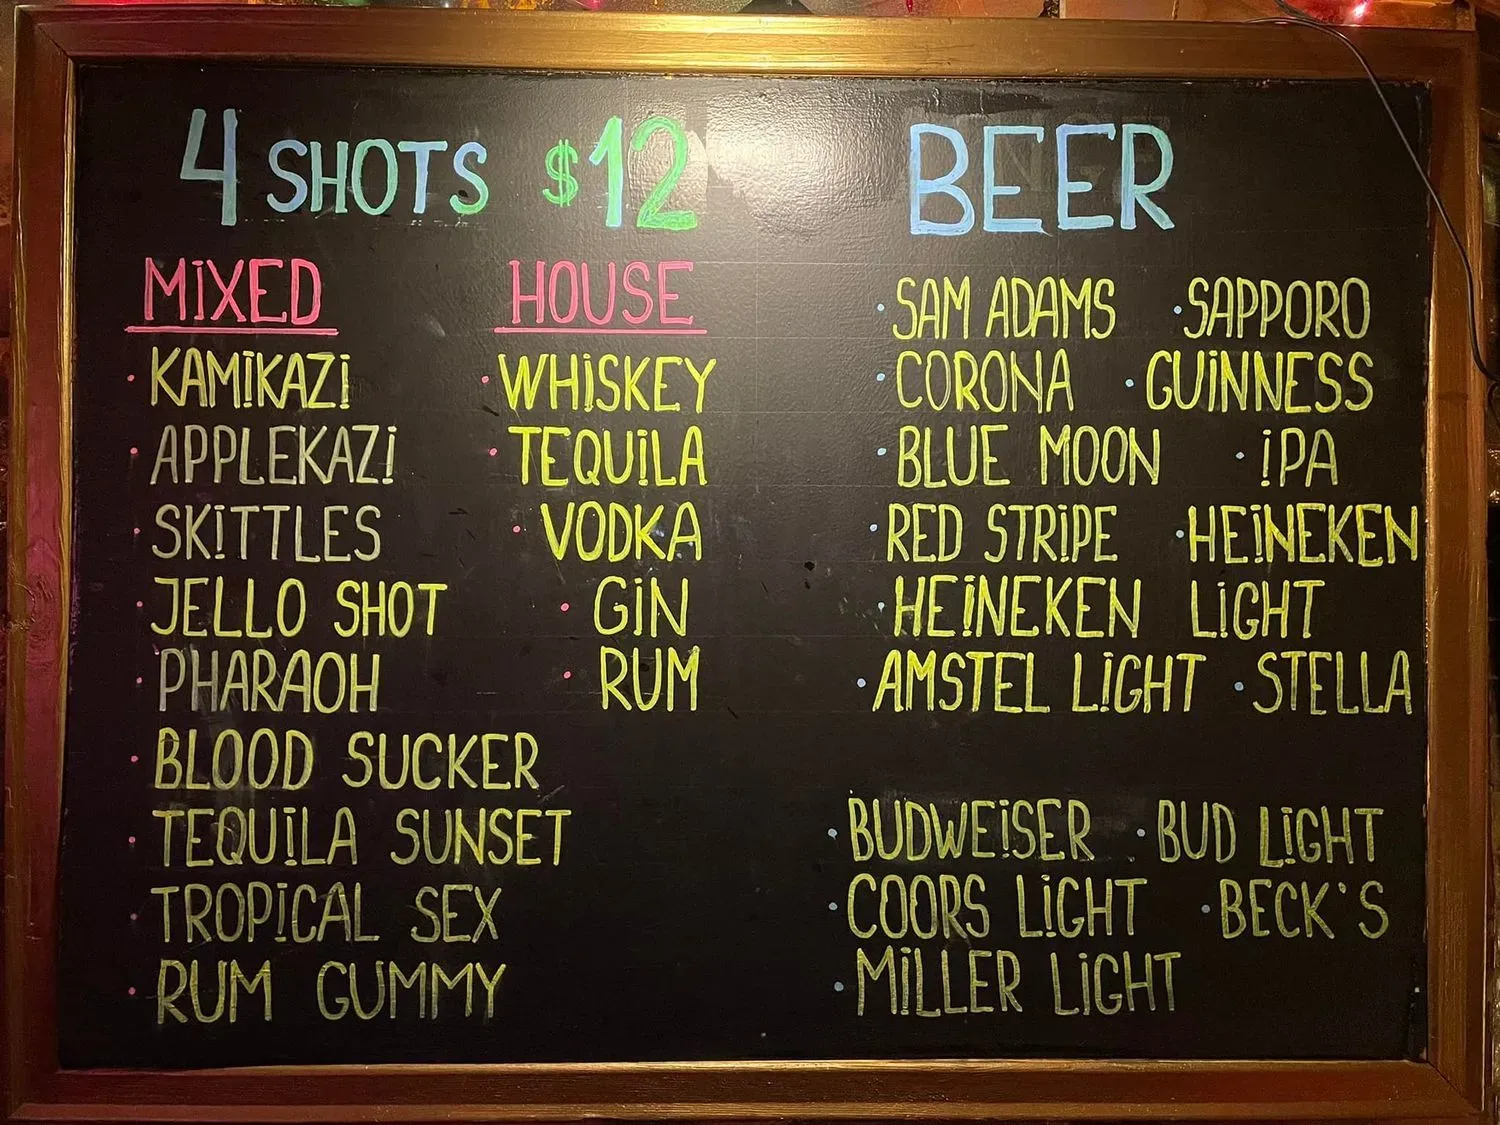 4 SHOTS $12
MIXED
• KAMIKAZI
• APPLEKAZI
• SKITTLES
• JELLO SHOT
• PHARAOH
• BLOOD SUCKER
• TEQUILA SUNSET
• TROPICAL SEX
• RUM GUMMY
HOUSE
• WHISKEY
• TEQUILA
• VODKA
• GIN
• RUM
BEER
• SAM ADAMS • SAPPORO
• CORONA • GUINNESS
• BLUE MOON • IPA
• RED STRIPE • HEINEKEN
• HEINEKEN LIGHT
• AMSTEL LIGHT • STELLA
• BUDWEISER • BUD LIGHT
• COORS LIGHT • BECK'S
• MILLER LIGHT